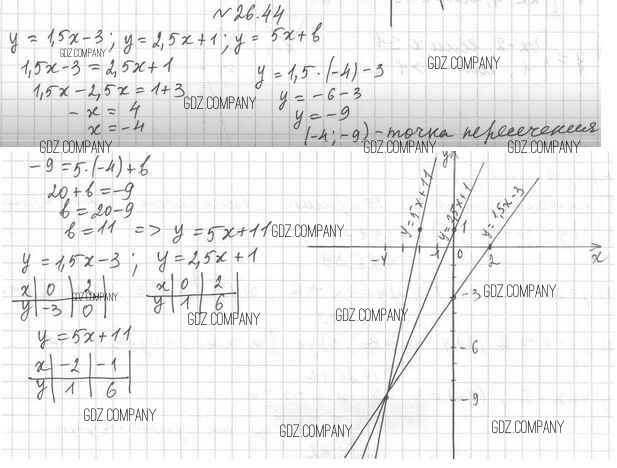 № 26.44
y = 1,5x-3; y = 2,5x+1; y = 5x+b
1,5x-3 = 2,5x+1
1,5x-2,5x = 1+3
-x = 4
x = -4
y = 1,5·(-4)-3
y = -6-3
y = -9
(-4; -9) - точка пересечения
GDZ.COMPANY
GDZ.COMPANY
GDZ.COMPANY
GDZ.COMPANY
GDZ.COMPANY
GDZ.COMPANY
-9 = 5·(-4)+b
20+b = -9
b = 20-9
b = 11 => y = 5x+11
GDZ.COMPANY
y = 1,5x-3; y = 2,5x+1
x | 0 | 2
y | -3 | 0
GDZ.COMPANY
x | 0 | 2
y | 1 | 6
GDZ.COMPANY
y = 5x+11
x | -2 | -1
y | 1 | 6
GDZ.COMPANY
y
y=5x+11
y=2,5x+1
y=1,5x-3
1
-4 -1 0 2 x
-3
GDZ.COMPANY
GDZ.COMPANY
-6
-9
GDZ.COMPANY
GDZ.COMPANY